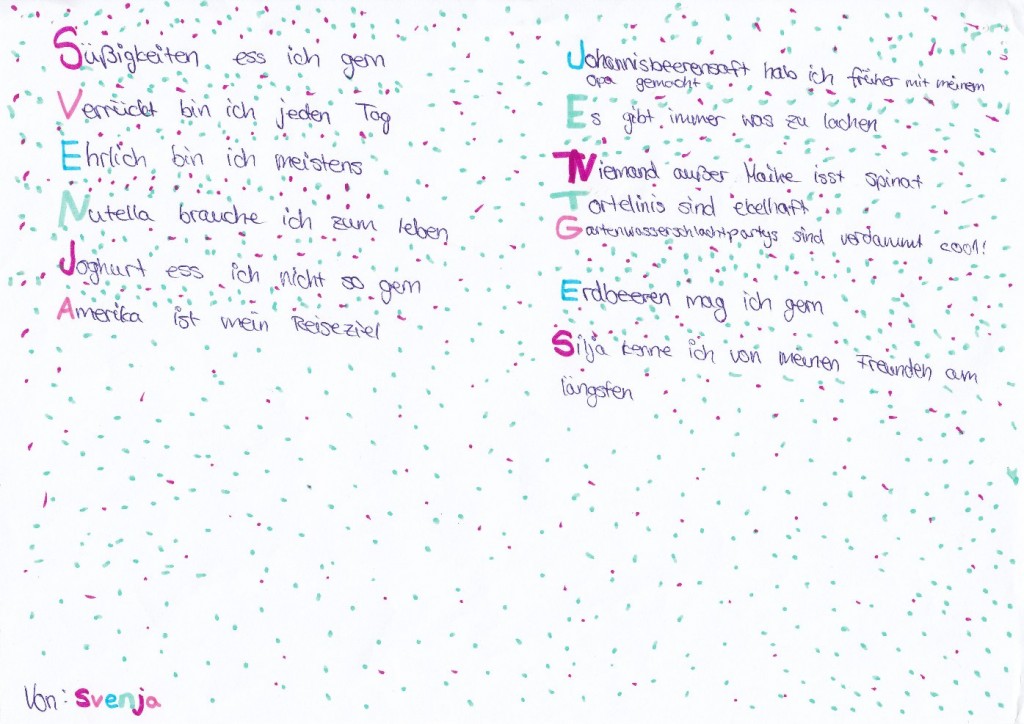 Süßigkeiten ess ich gern
Verrückt bin ich jeden Tag
Ehrlich bin ich meistens
Nutella brauche ich zum leben
Joghurt ess ich nicht so gern
Amerika ist mein Reiseziel
Johannisbeerensaft hab ich früher mit meinem
Opa gemacht
Es gibt immer was zu lachen
Niemand außer Maike isst spinat
Tortelinis sind ekelhaft
Gartenwasserschlachtpartys sind verdammt cool!
Erdbeeren mag ich gern
Silja kenne ich von meinen Freunden am
längsten
Von: Svenja